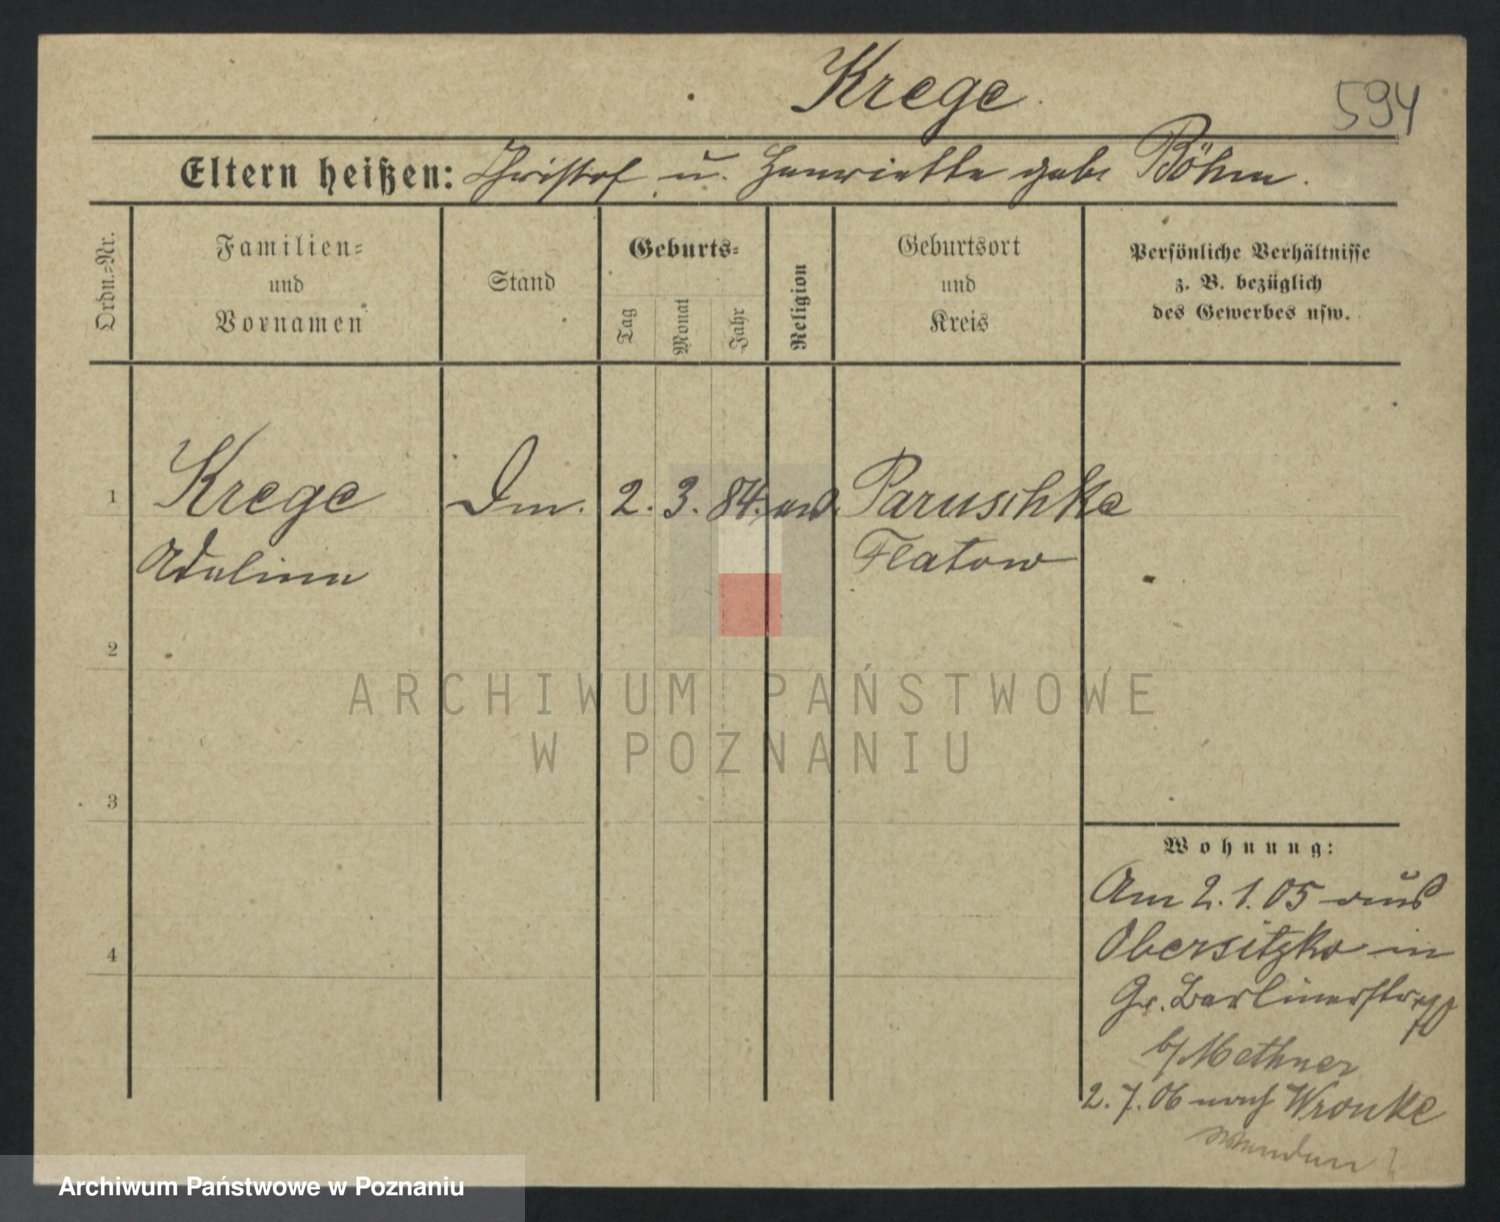 Krege.
594
Eltern heißen: Christof u. Henriette geb. Böhm.
Ordn.=Nr.
Familien=
und
Vornamen
Stand
Geburts=
Tag
Monat
Jahr
Religion
Geburtsort
und
Kreis
Persönliche Verhältnisse
z. B. bezüglich
des Gewerbes usw.
1
Krege
Adeline
Dm.
2. 3. 84.
Paruschke
Flatow
2
3
4
Wohnung:
Am 2. 1. 05 aus
Obersitzko in
Gr. Berlinerstr.
b/ Methner
2. 7. 06 nach Wronke
wenden!
ARCHIWUM PAŃSTWOWE
W POZNANIU
Archiwum Państwowe w Poznaniu